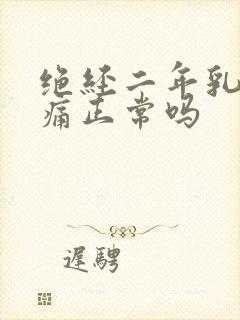 绝经二年乳
痛正常吗
遲騁